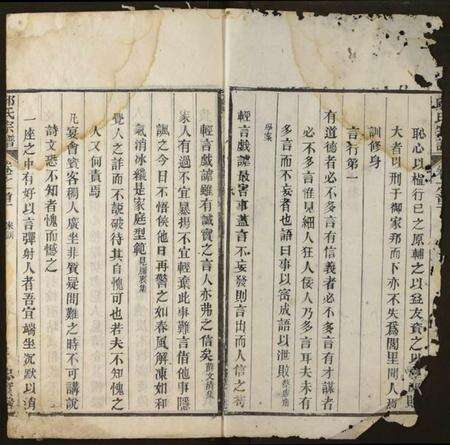 恥心以植行己之原輔之以益友資之以
大者以刑于御家邦而下亦不失為閭里閒人
訓修身
言行第一
有道德者必不多言有信義者必不多言有才謀者
必不多言惟見細人狂人佞人乃多言耳夫未有
多言而不妄者也語曰事以密成語以泄敗
學案
輕言戲謔最害事蓋言不妄發則言出而人信之苟
輕言戲謔雖有誠實之言人亦弗之信矣薛文清集
家人有過不宜暴揚不宜輕棄此事難言借他事隱
諷之今日不悟俟他日再警之如春風解凍如和
氣消冰纔是家庭型範
覺人之詐而不說破待其自愧可也若夫不知愧之
人又何責焉
凡宴會賓客稠人廣坐非質疑問難之時不可講說
詩文恐不知者愧而憾之
一座之中有好以言彈射人者吾宜端坐沉默以消
氏宗譜
卷之首 家訓